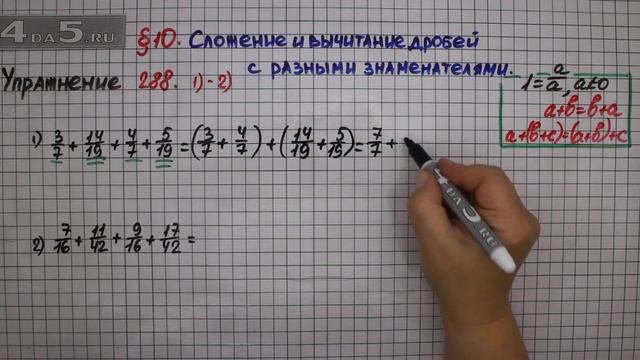 4DA5.RU
§10. Сложение и вычитание дробей
с разными знаменателями.
Упражнение 288. 1)-2)
1=a/a, a≠0
a+b=b+a
a+(b+c)=(a+b)+c
1) 3/7 + 14/19 + 4/7 + 5/19 = (3/7 + 4/7) + (14/19 + 5/19) = 7/7 +
2) 7/16 + 11/42 + 9/16 + 17/42 =
4DA5.RU